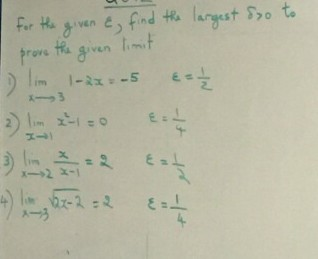 For the given ε, find the largest δ>0 to
prove the given limit
1) lim x→3 1-2x = -5 ε = 1/2
2) lim x→1 x²-1 = 0 ε = 1/4
3) lim x→2 x/(x-1) = 2 ε = 1/2
4) lim x→3 √(2x-2) = 2 ε = 1/4